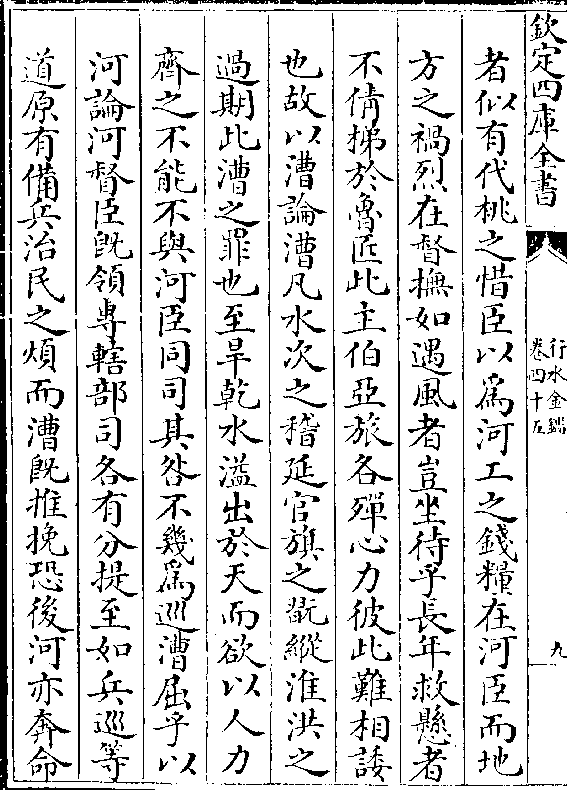 欽定四庫全書
行水金鑑
卷四十五
九
者似有代桃之惜臣以為河工之錢糧在河臣而地
方之禍烈在督撫如遇風者豈坐待乎長年救懸者
不倩梯於魯匠此主伯亞旅各殫心力彼此難相諉
也故以漕論漕凡水次之稽延官旗之翫縱淮洪之
過期此漕之罪也至旱乾水溢出於天而欲以人力
齊之不能不與河臣同司其咎不幾為巡漕屈乎以
河論河督臣既領專轄部司各有分提至如兵巡等
道原有備兵治民之煩而漕既推挽恐後河亦奔命